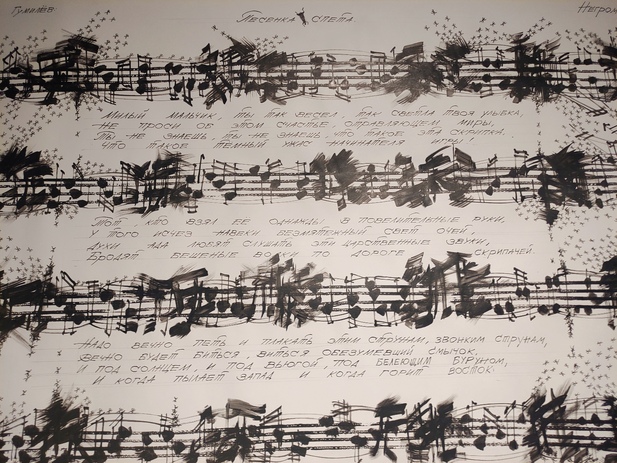 Гумилёв.
Песенка спета.
Негром
Милый мальчик, ты так весел, так светла твоя улыбка,
Не проси об этом счастье, отравляющем миры,
Ты не знаешь, ты не знаешь, что такое эта скрипка,
Что такое тёмный ужас начинателя игры!
Тот, кто взял её однажды в повелительные руки,
У того исчез навеки безмятежный свет очей,
Духи ада любят слушать эти царственные звуки,
Бродят бешеные волки по дороге скрипачей.
Надо вечно петь и плакать этим струнам, звонким струнам,
Вечно будет биться, виться обезумевший смычок,
И под солнцем, и под вьюгой, под белеющим буруном,
И когда пылает запад и когда горит восток.